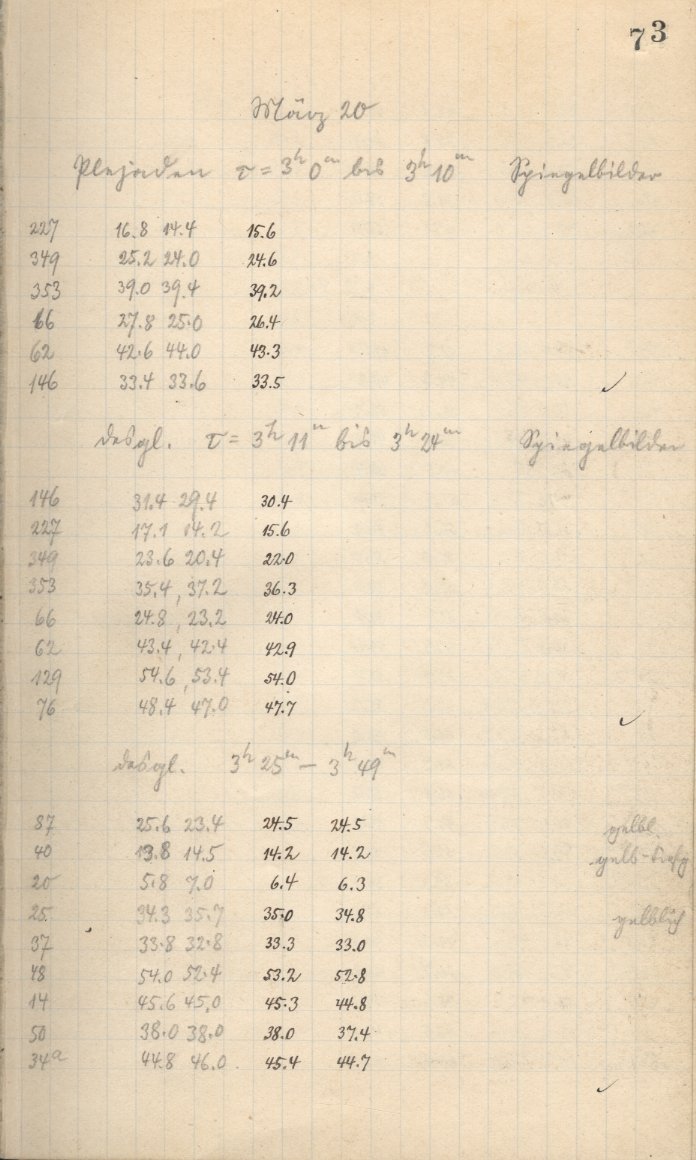 73
März 20
Plejaden τ = 3ʰ 0ᵐ bis 3ʰ 10ᵐ Spiegelbilder
227 16.8 14.4 15.6
349 25.2 24.0 24.6
353 39.0 39.4 39.2
66 27.8 25.0 26.4
62 42.6 44.0 43.3
146 33.4 33.6 33.5 ✓
desgl. τ = 3ʰ 11ᵐ bis 3ʰ 24ᵐ Spiegelbilder
146 31.4 29.4 30.4
227 17.1 14.2 15.6
349 23.6 20.4 22.0
353 35.4, 37.2 36.3
66 24.8, 23.2 24.0
62 43.4, 42.4 42.9
129 54.6, 53.4 54.0
76 48.4 47.0 47.7 ✓
desgl. 3ʰ 25ᵐ – 3ʰ 49ᵐ
87 25.6 23.4 24.5 24.5 gelbl.
40 13.8 14.5 14.2 14.2 gelb-
20 5.8 7.0 6.4 6.3
25 34.3 35.7 35.0 34.8 gelblich
37 33.8 32.8 33.3 33.0
48 54.0 52.4 53.2 52.8
14 45.6 45.0 45.3 44.8
50 38.0 38.0 38.0 37.4
34a 44.8 46.0 45.4 44.7 ✓